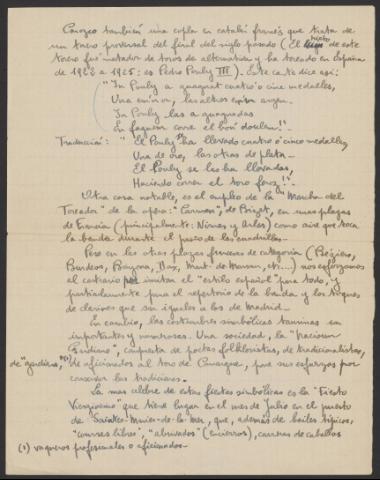 Conozco también una copla en catalán francés que trata de
un torero provenzal del final del siglo pasado (El hijo de este
torero fue matador de toros de alternativa y ha toreado en España
de 1922 a 1925: es Pedro Pouly III). Este cante dice así:
"In Pouly a quaquat cuatr'o cinc medalles,
Una en or, las altros en argen.
In Pouly las a quaquadas
En corre el bon doulen!"
Traducción: "El Pouly ha llevado cuatro ó cinco medallas,
Una de oro, las otras de plata
El Pouly se las ha llevadas,
Haciendo correr el toro feroz!".
Otra cosa notable, es el empleo de la "Marcha del
Toreador" de la opera: "Carmen", de Bizet, en unas plazas
de Francia (principalmente: Nimes y Arles) como aire que toca
la banda durante el paseo de las cuadrillas.
Pero en las otras plazas francesas de categoría (Béziers,
Burdeos, Bayona, Dax, Mont de Marsan, etc...) nos esforzamos
el contrario imitan el "estilo español" para todo, y
particularmente para el repertorio de la banda y los toques
de clarines que son iguales a los de Madrid.
En cambio, las costumbres simbólicas taurinas son
importantes y numerosas. Una sociedad, la "Nacioun
Gardiano", compuesta de poetas folkloristas, de tradicionalistas,
de "gardians," (1) de aficionados al toro de Camargue, hace sus esfuerzos por
conservar las tradiciones.
La mas celebre de estas fiestas simbólicas es la "Fiesta
Virginenco" que tiene lugar en el mes de Julio en el puerto
de Saintes-Maries-de-la-Mer, que, además de bailes típicos,
"courses libres", "abrivados" (encierros), carreras de caballos
(1) vaqueros profesionales o aficionados